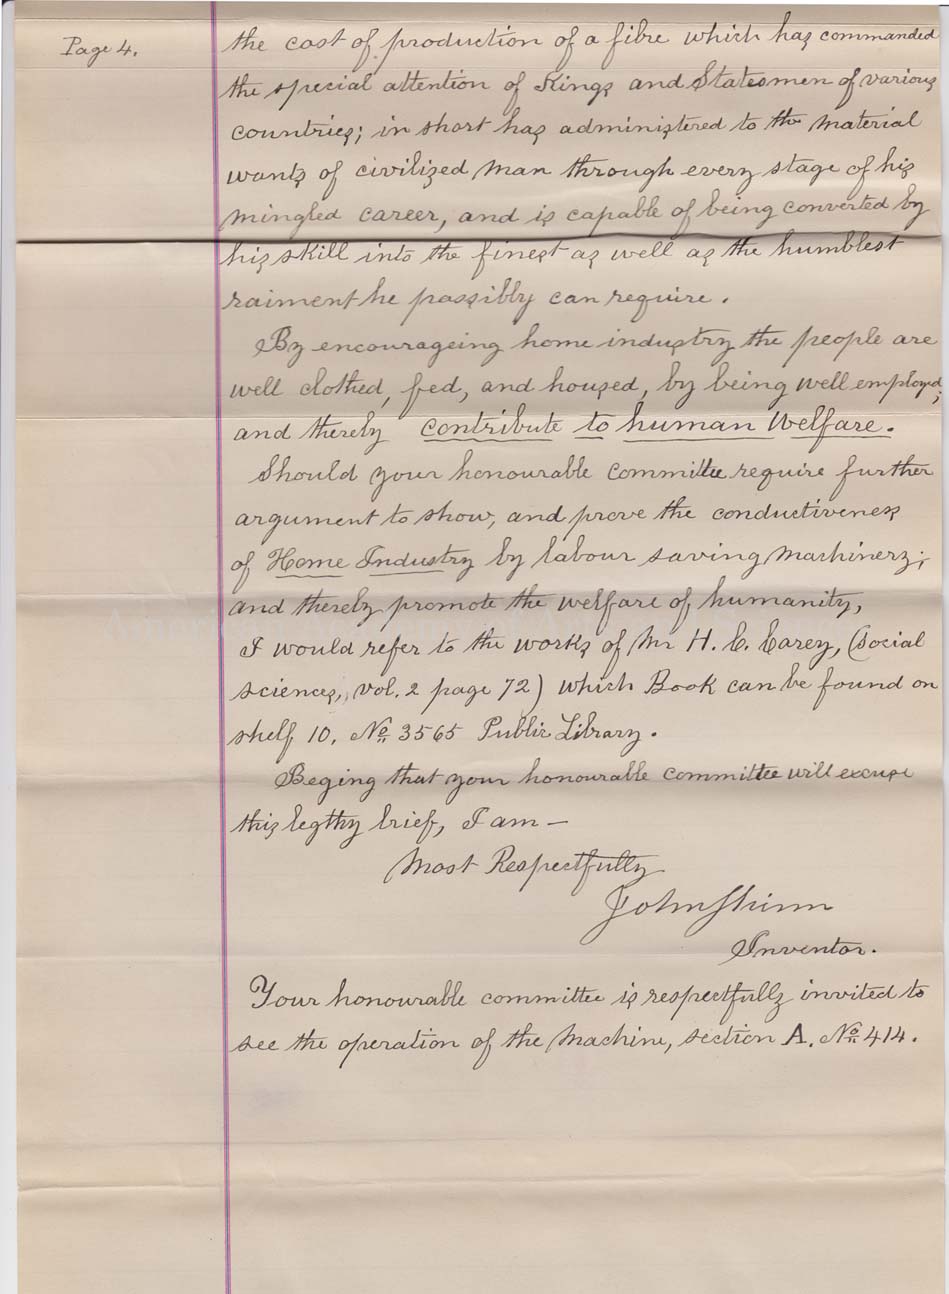 Page 4.
the cost of production of a fibre which has commanded
the special attention of Kings and Statesmen of various
countries; in short has administered to the material
wants of civilized man through every stage of his
mingled career, and is capable of being converted by
his skill into the finest as well as the humblest
raiment he possibly can require.
By encourageing home industry the people are
well clothed, fed, and housed, by being well employed;
and therely contribute to human Welfare.
Should your honourable committee require further
argument to show, and prove the conductiveness
of Home Industry by labour saving Machinery;
and therely promote the welfare of humanity,
I would refer to the works of Mr H. C. Carey, (social
sciences, vol. 2 page 72) which Book can be found on
shelf 10, No. 3565 Public Library.
Beging that your honourable committee will excuse
this legthy brief, I am —
Most Respectfully
John Shinn
Inventor.
Your honourable committee is respectfully invited to
see the operation of the Machine, section A. No. 414.